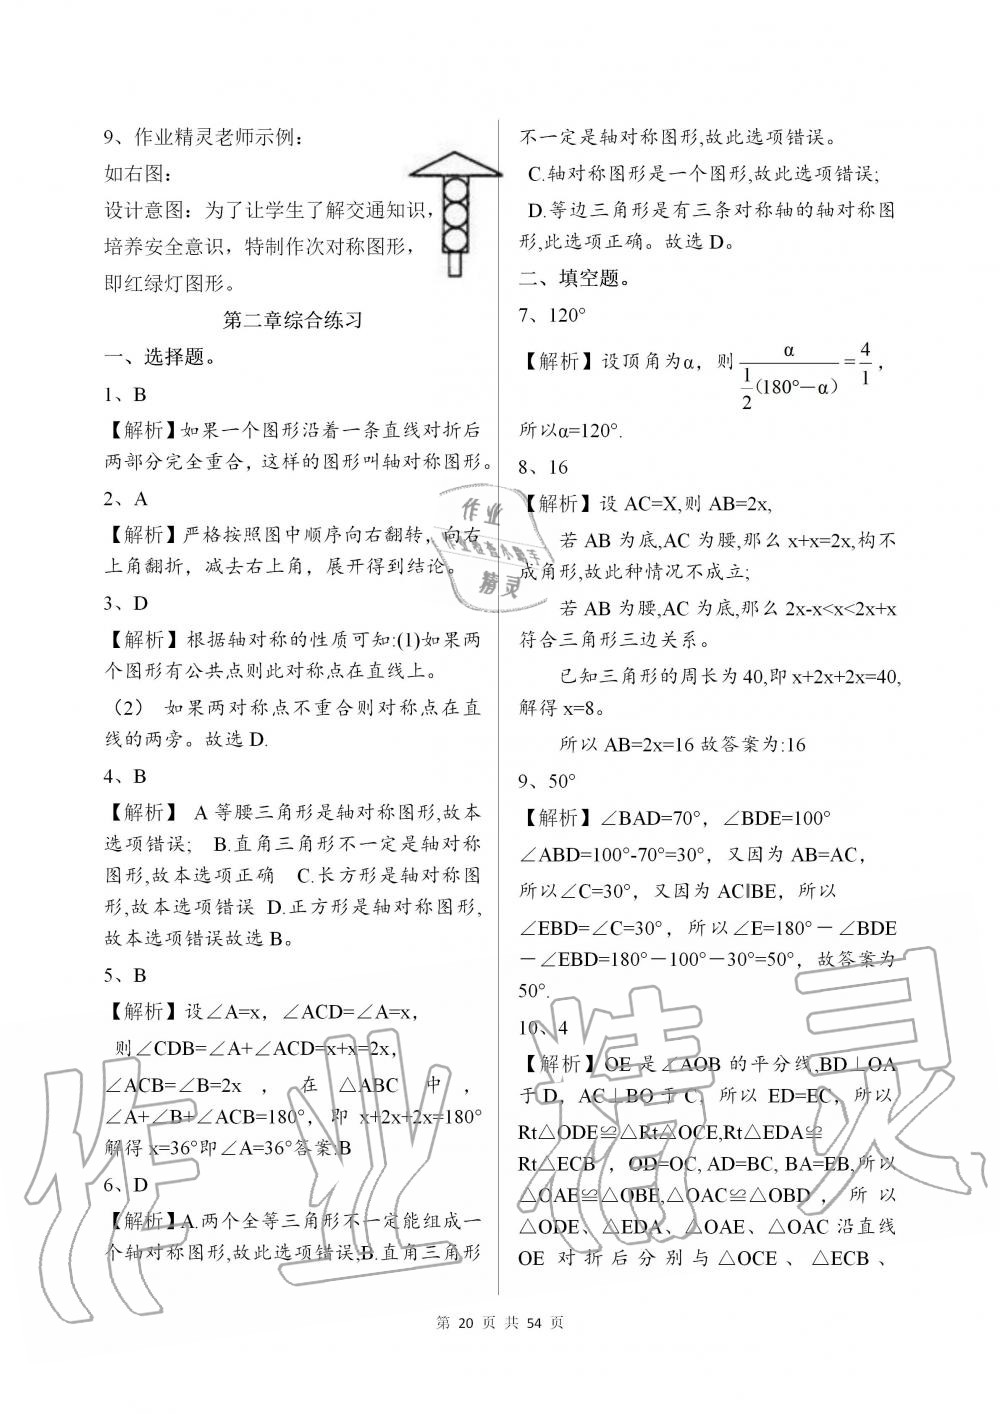 9、作业精灵老师示例：
如右图：
设计意图：为了让学生了解交通知识，
培养安全意识，特制作次对称图形，
即红绿灯图形。
第二章综合练习
一、选择题。
1、B
【解析】如果一个图形沿着一条直线对折后
两部分完全重合，这样的图形叫轴对称图形。
2、A
【解析】严格按照图中顺序向右翻转，向右
上角翻折，减去右上角，展开得到结论。
3、D
【解析】根据轴对称的性质可知:(1)如果两
个图形有公共点则此对称点在直线上。
（2） 如果两对称点不重合则对称点在直
线的两旁。故选 D.
4、B
【解析】 A 等腰三角形是轴对称图形,故本
选项错误; B.直角三角形不一定是轴对称
图形,故本选项正确 C.长方形是轴对称图
形,故本选项错误 D.正方形是轴对称图形,
故本选项错误故选 B。
5、B
【解析】设∠A=x，∠ACD=∠A=x，
则∠CDB=∠A+∠ACD=x+x=2x，
∠ACB=∠B=2x ， 在 △ABC 中，
∠A+∠B+∠ACB=180°，即 x+2x+2x=180°
解得 x=36°即∠A=36°答案.B
6、D
【解析】A.两个全等三角形不一定能组成一
个轴对称图形,故此选项错误,B.直角三角形
不一定是轴对称图形,故此选项错误。
C.轴对称图形是一个图形,故此选项错误;
D.等边三角形是有三条对称轴的轴对称图
形,此选项正确。故选 D。
二、填空题。
7、120°
【解析】设顶角为α，则 α/(1/2（180°－α）)=4/1，
所以α=120°.
8、16
【解析】设 AC=X,则 AB=2x,
若 AB 为底,AC 为腰,那么 x+x=2x,构不
成角形,故此种情况不成立;
若 AB 为腰,AC 为底,那么 2x-x<x<2x+x
符合三角形三边关系。
已知三角形的周长为 40,即 x+2x+2x=40,
解得 x=8。
所以 AB=2x=16 故答案为:16
9、50°
【解析】∠BAD=70°，∠BDE=100°
∠ABD=100°-70°=30°，又因为 AB=AC，
所以∠C=30°，又因为 AC∥BE，所以
∠EBD=∠C=30°，所以∠E=180°－∠BDE
－∠EBD=180°－100°－30°=50°，故答案为
50°.
10、4
【解析】OE 是∠AOB 的平分线,BD⊥OA
于 D，AC⊥BO 于 C，所以 ED=EC，所以
Rt△ODE≌△Rt△OCE,Rt△EDA≌
Rt△ECB ，OD=OC, AD=BC, BA=EB,所以
△OAE≌△OBE,△OAC≌△OBD ， 所 以
△ODE、△EDA、△OAE、△OAC 沿直线
OE 对 折 后 分 别 与 △OCE 、 △ECB 、
第 20 页 共 54 页
作业
作业检查小帮手
精灵
作业精灵